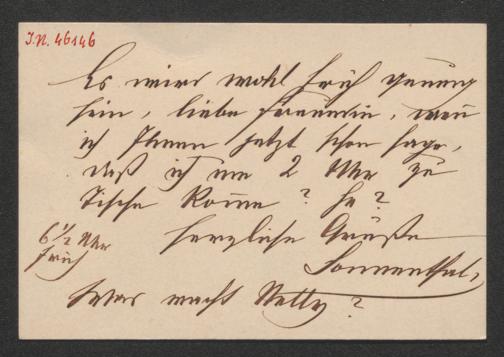 J.N. 46146
Es wird wohl früh genung
sein, liebe Freundin, wenn
ich Ihnen jetzt schon sage,
daß ich um 2 Uhr zu
Tische komme? He?
Herzliche Grüße
6 1/2 Uhr
früh
Sonnenthal,
Was macht Netty?